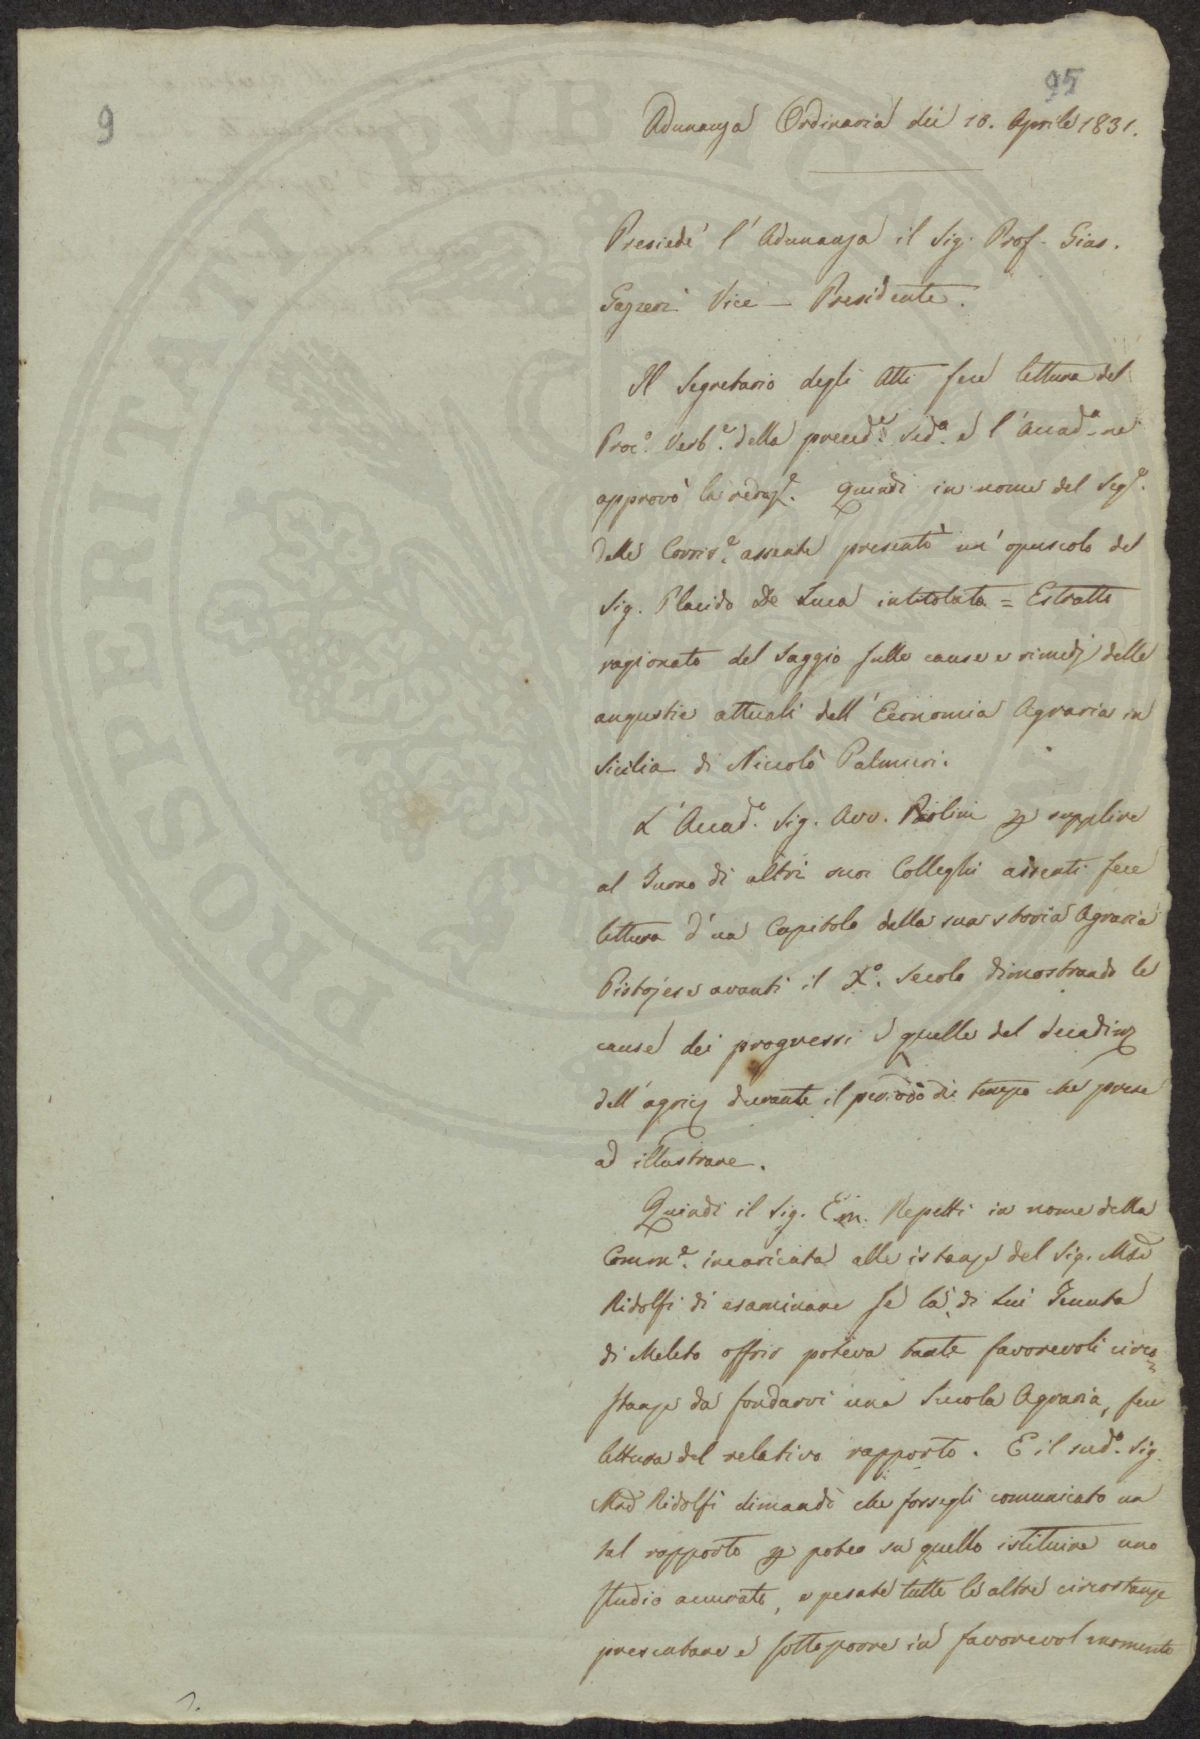 95
9
Adunanza Ordinaria dei 10. Aprile 1831.
Presiedè l'Adunanza il Sig. Prof. Gias.
Gazzeri Vice - Presidente.
Il Segretario degli Atti fece lettura del
Proc.o Verb.e della preced.e Sed.a e l'Accad.a ne
approvò la redaz.e. Quindi in nome del Seg.o
delle Corris.e assente presentò un'opuscolo del
Sig. Placido De Luca intitolato = Estratto
ragionato del Saggio sulle cause e rimedj delle
angustie attuali dell'Economia Agraria in
Sicilia di Niccolò Palmieri.
L'Accad.o Sig. Avv. Paolini p supplire
al Turno di altri suoi Colleghi assenti fece
lettura d'un Capitolo della sua storia Agraria
Pistojese avanti il X.o Secolo dimostrando le
cause dei progressi e quelle del decadim
dell'agric durante il periodo di tempo che prese
ad illustrare.
Quindi il Sig. Em. Repetti in nome della
Comm.e incaricata alle istanze del Sig. Mse
Ridolfi di esaminare se la di Lui Tenuta
di Meleto offrir poteva tante favorevoli circo=
stanze da fondarvi una Scuola Agraria, fece
lettura del relativo rapporto. E il sud.o Sig.
Mse Ridolfi dimandò che fossegli comunicato un
tal rapporto p poter su quello istituire uno
studio accurato, e pesate tutte le altre circostanze
presentare e sottoporre in favorevol momento
PROSPERITATI PVBLICAE